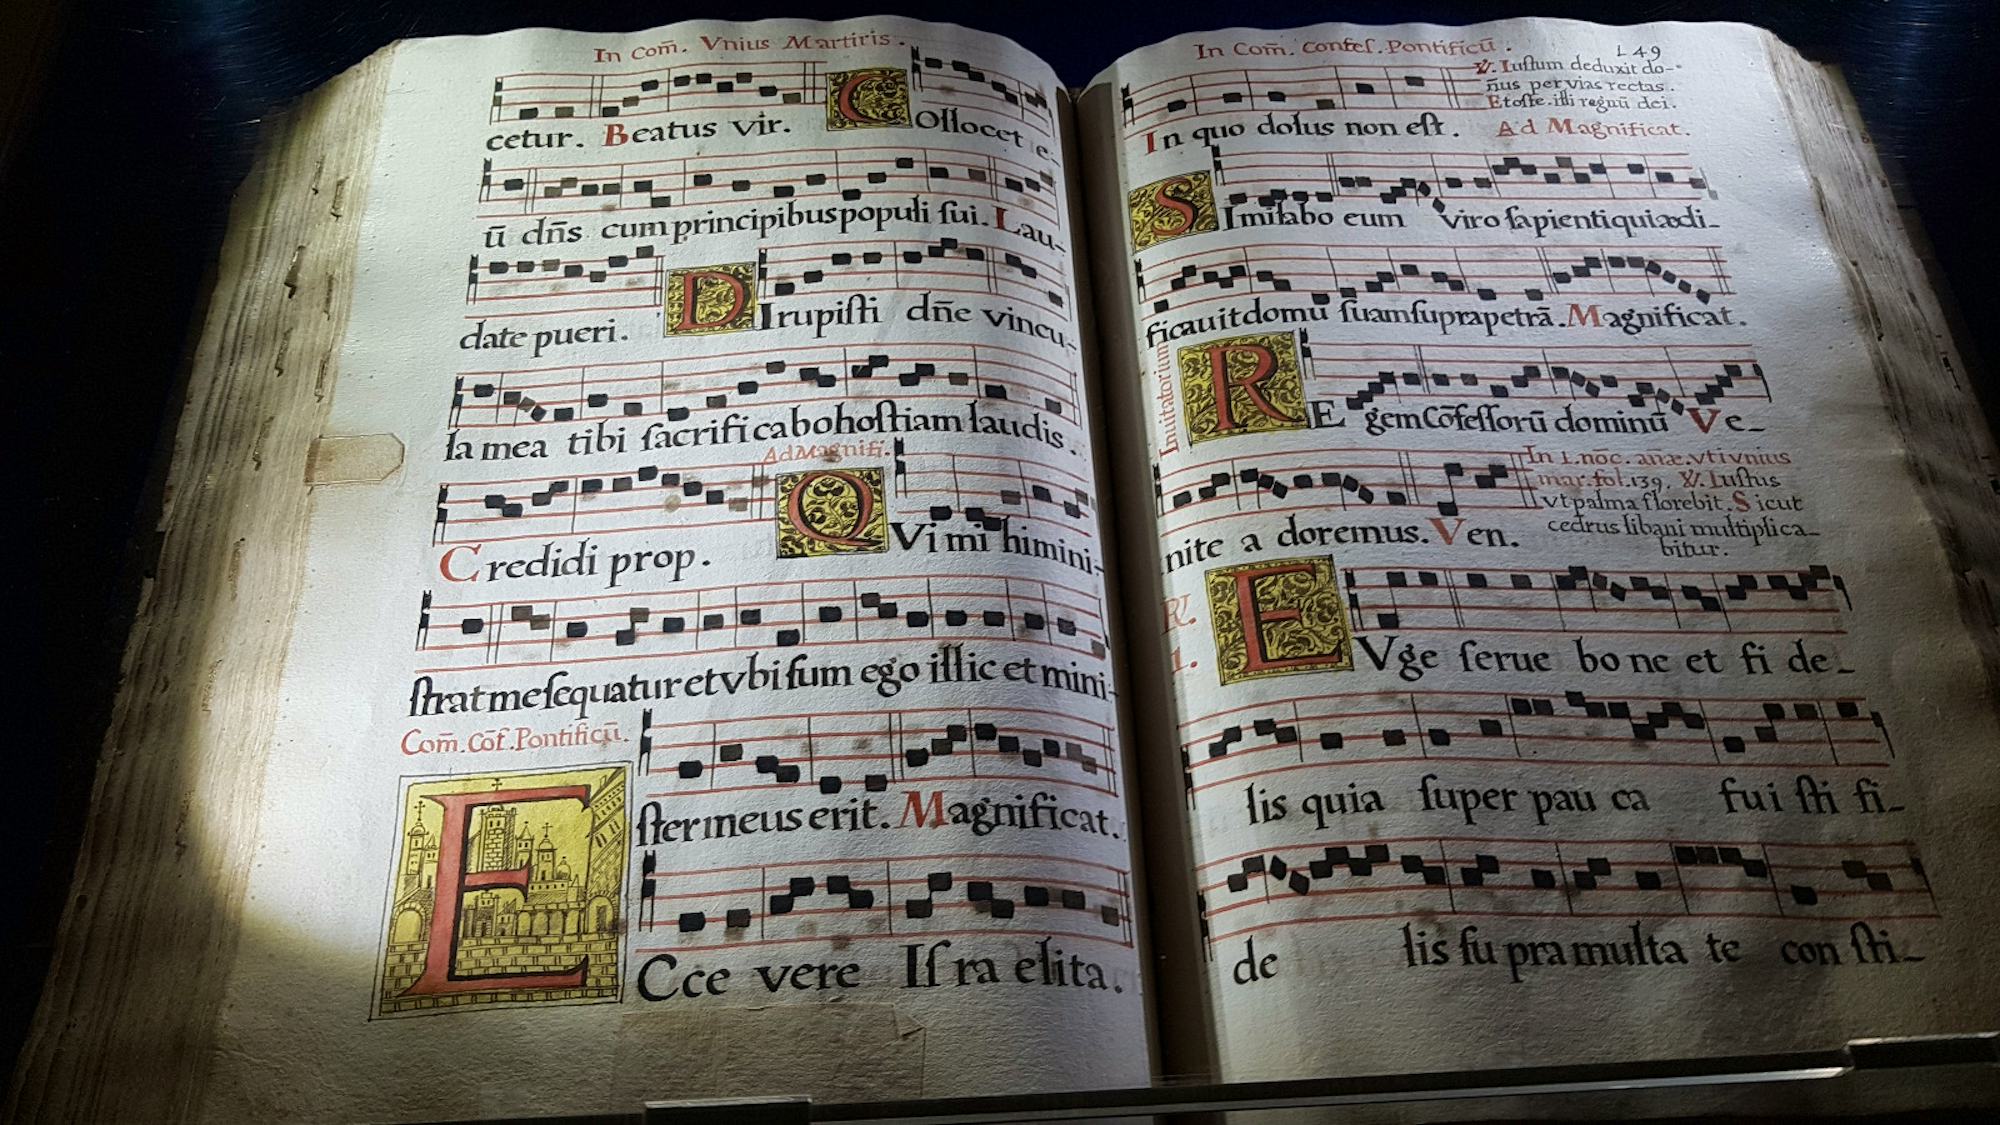 In Com̄. Vnius Martiris.
cetur. Beatus vir. Collocet e-
ū dn̄s cum principibus populi ſui. Lau-
date pueri. DIrupiſti dn̄e vincu-
la mea tibi ſacrificabo hoſtiam laudis.
Ad Magnifi.
Credidi prop. QVi mi himini-
ſtrat me ſequatur et vbi ſum ego illic et mini-
Com̄. Cōf. Pontificū.
ſter meus erit. Magnificat.
ECce vere Iſraelita.
In Com̄. Confeſ. Pontificū.
149
℣. Iuſtum deduxit do-
n̄us per vias rectas.
Et oſte. illi regnū dei.
In quo dolus non eſt. Ad Magnificat.
SImilabo eum viro ſapienti qui ædi-
ficauit domū ſuam ſupra petrā. Magnificat.
Inuitatorium
REgem Cōfeſſorū dominū Ve-
In 1. noc. anæ. vt i vnius
mar. fol. 139. ℣. Iuſtus
vt palma florebit. Sicut
cedrus libani multiplica-
bitur.
nite adoremus. Ven.
℟.
1.
EVge ſerue bone et fide-
lis quia ſuper pauca fuiſti fi-
de lis ſupra multa te conſti-